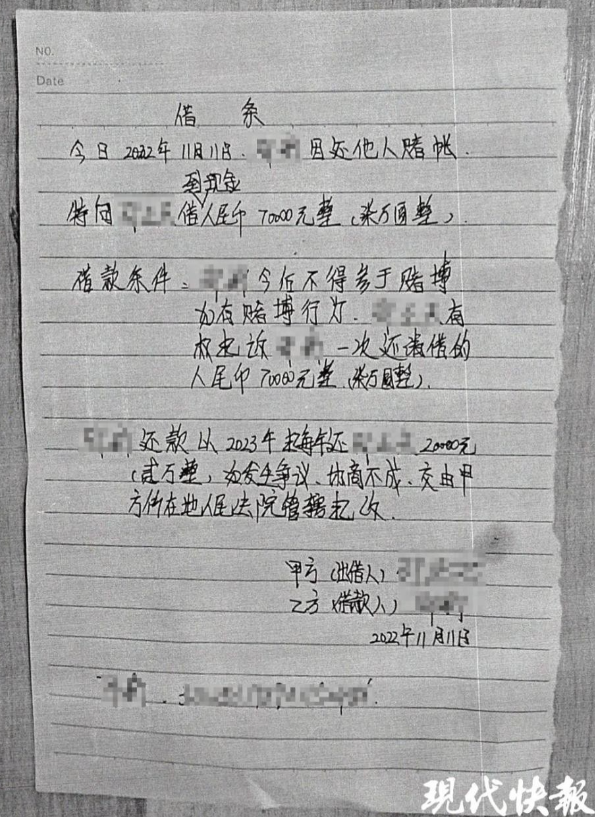 NO.
Date
借 条
今日2022年11月11日. 因还他人赌帐.
到现金
特向 借人民币70000元整(柒万圆整).
借款条件: 今后不得参于赌博
如有赌博行为. 有
权起诉 一次还清借的
人民币70000元整(柒万圆整).
还款从2023年起每年还 20000元
(贰万整)如发生争议、协商不成、交由甲
方所在地人民法院管辖起诉.
甲方(出借人)
乙方(借款人)
2022年11月11日
現代快報